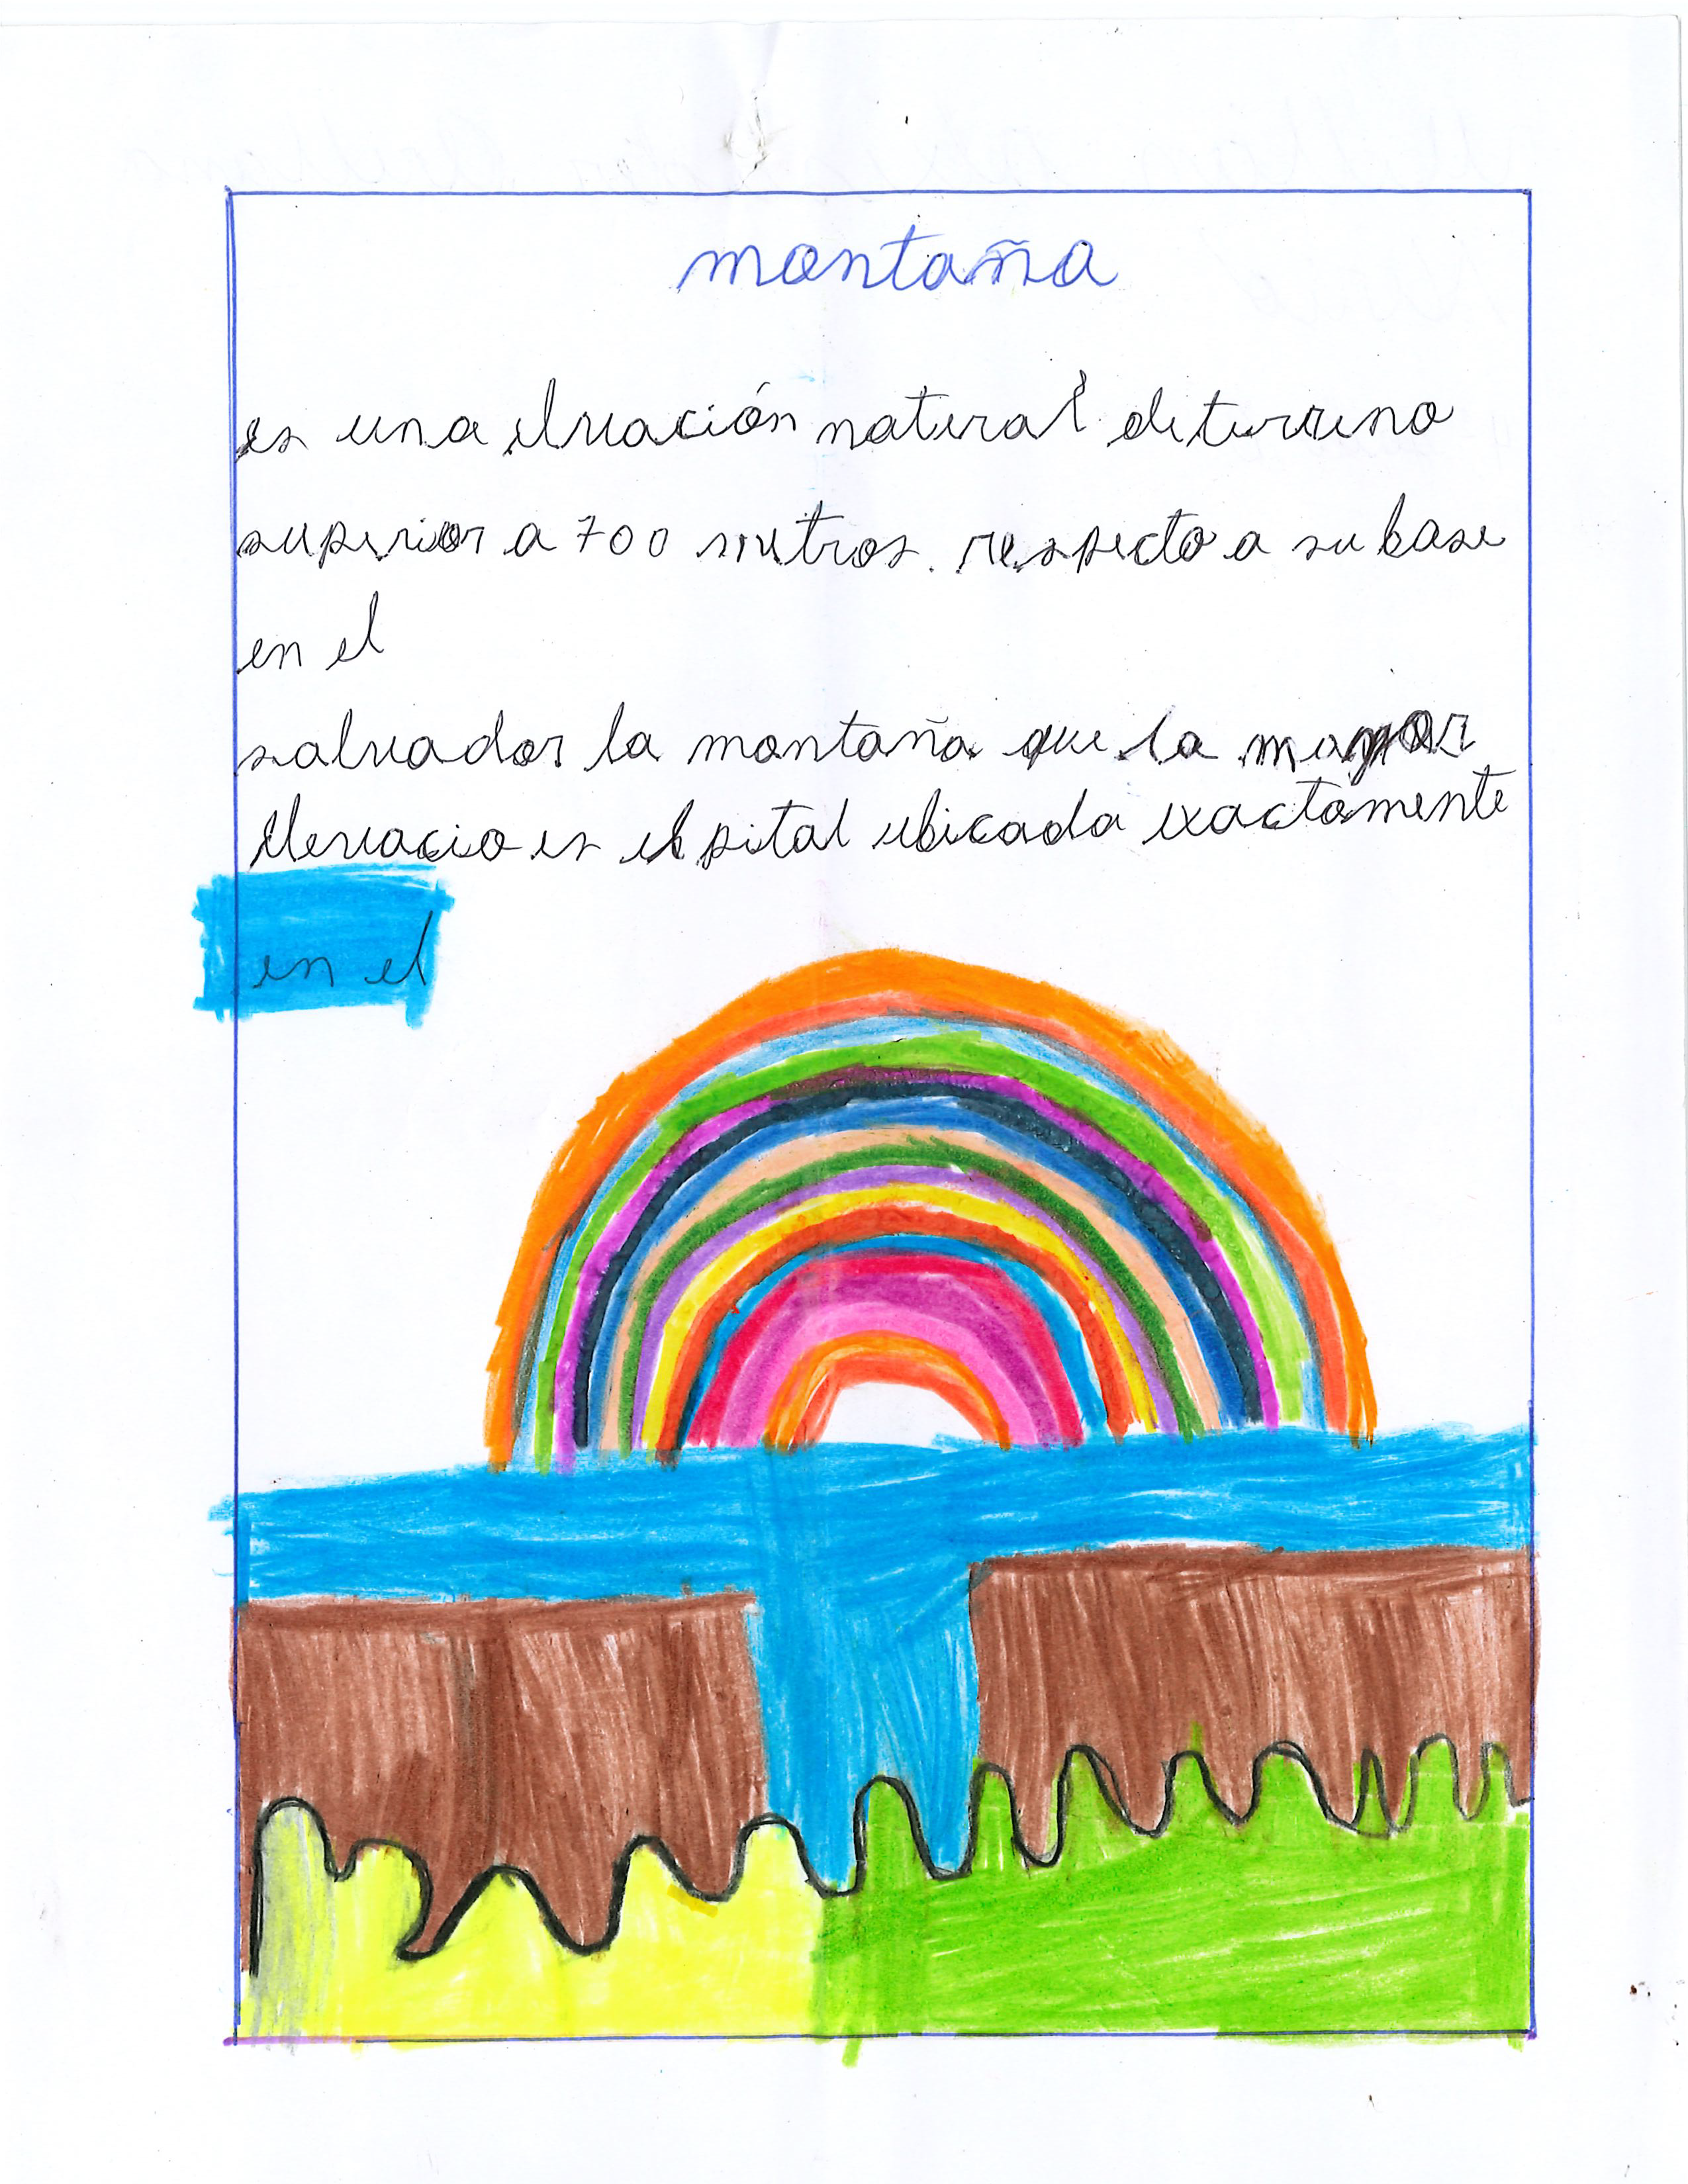 montaña
es una eluación natural de turreno
superior a 700 metros. respecto a su base
en el
salvador la montaña que la mayor
Elevacio es el pital ubicada exactamente
en el